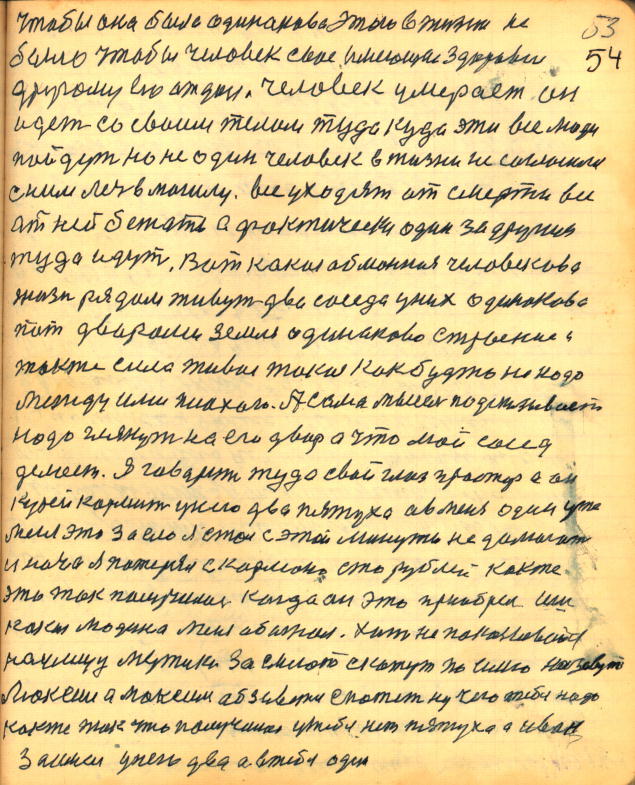 53
54
чтобы она была одинакова этого в жизни не
было чтобы человек свое имеющие здоровие
другому его отдал. человек умерает он
идет со своим телом туда куда эти все люди
пойдут но не один человек в жизни не согласился
с ним лезь в могилу. все уходят от смерти все
от ней бежать а фактически один за другим
туда идут. Вот какая обманная человекова
жизн рядом живут два соседа у них одинакова
под двороми земля одинаково строение и
также сила живая такая как будто не надо
между ими плахого. А сама мысел подсказывает
надо глянут на его двор а что мой сосед
делает. Я говарит туда свой глаз простер а он
курей кормит у него два пятуха а в меня один уже
меня это заело я стал с этой минуты не
иначе я потерял с кормона сто рублей как же
это так получилос когда он это приобрел или
какая людина меня обагнал. Хот не показывайся
на улицу мужики за скажут по имю назовут
Максим а Максим обзоветя скажет ну чего тебе надо
как же так что получился у тебя нет пятуха а Иван
у него два а в тебя один